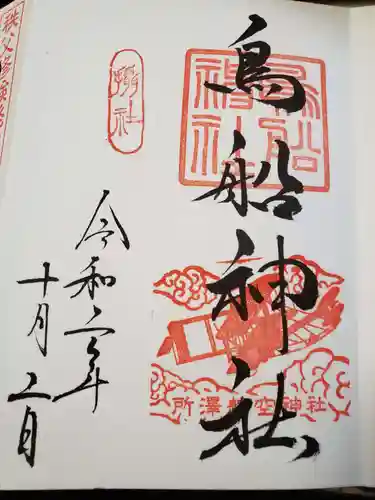 鳥船神社
鳥船神社
摂社
所澤航空神社
令和二年
十月二日